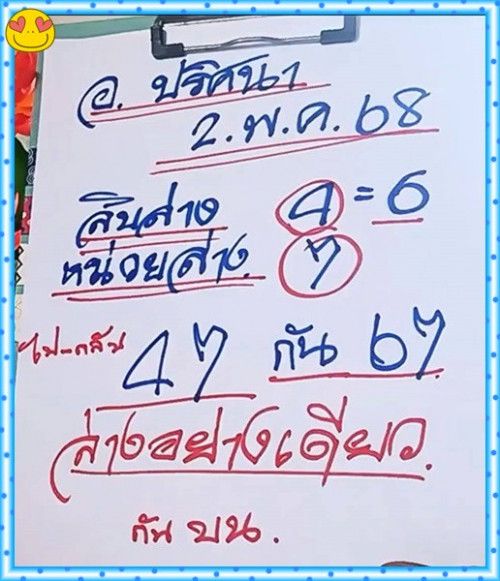 อ. ปริศนา
2.พ.ค.68
สิบล่าง 4 = 6
หน่วยล่าง. 7
ไป-กลับ 47 กัน 67
ล่างอย่างเดียว.
กัน บน.